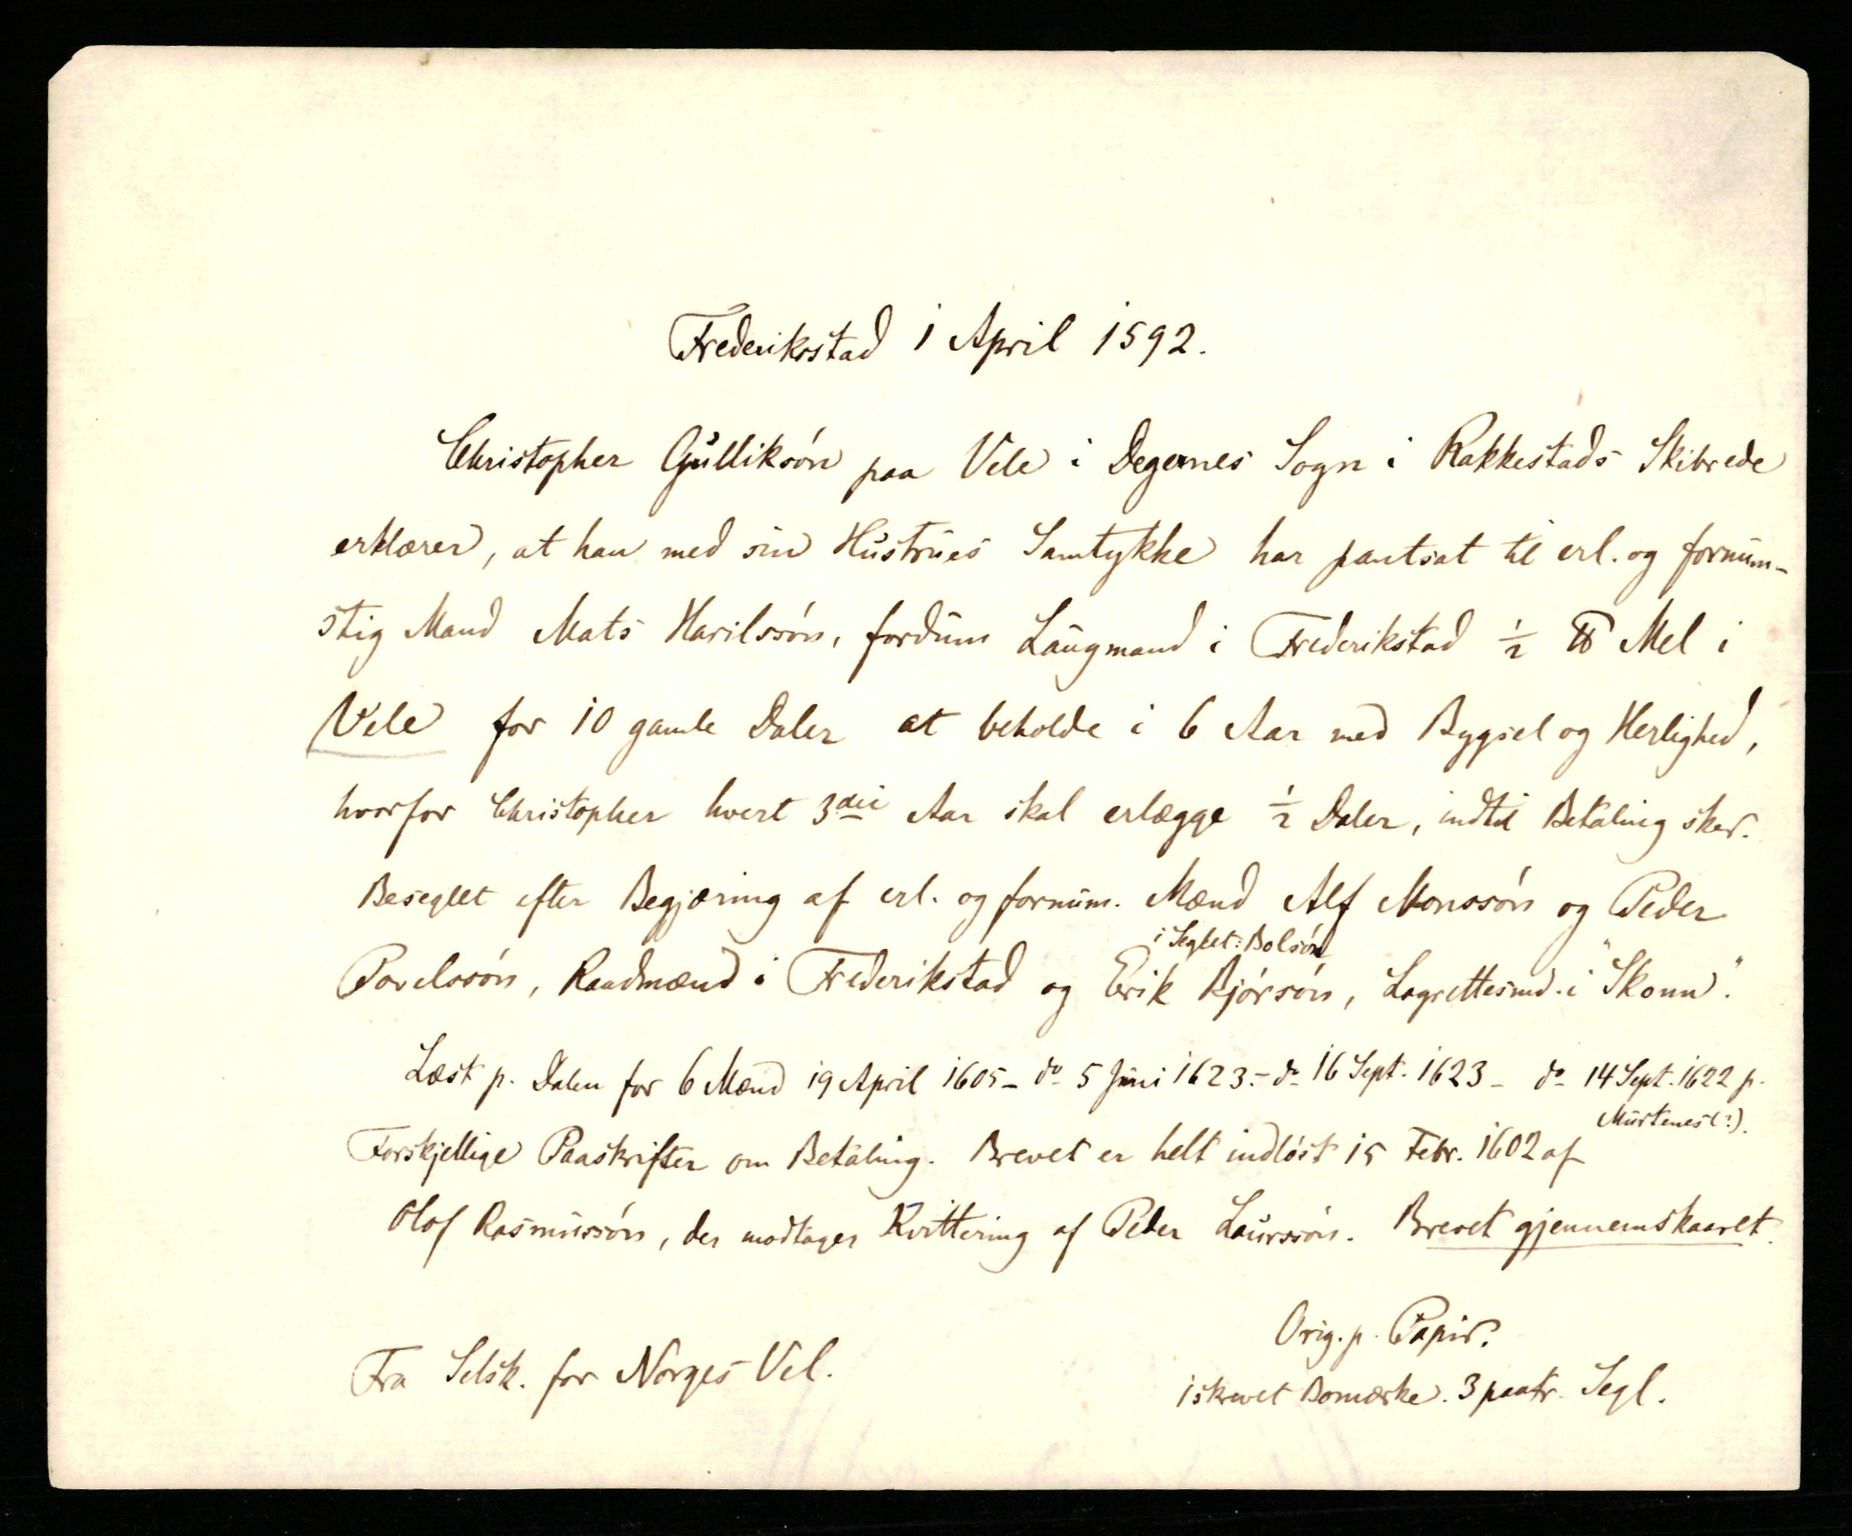 Frederikstad 1 April 1592.
Christopher Gulliksón paa Vele i Degernes Sogn i Rakkestads Skibrede
erklærer, at han med sin Hustrues Samtykke har pantsat til erl. og fornum-
stig Mand Mats Harilssón, fordum Laugmand i Frederikstad ½ ℔ Mel i
Vele for 10 gamle Daler at beholde i 6 Aar med Bygsel og Herlighed,
hvorfor Christopher hvert 3die Aar skal erlægge ½ Daler, indtil Betaling sker.
Beseglet efter Begjæring af erl. og fornum. Mænd Alf Monssón og Peder
i Seglet: Bolsón
Povelssón, Raadmænd i Frederikstad og Erik Bjórsón, Lagrettesmd. i "Skonn".
Læst p. Dalen for 6 Mænd 19 April 1605 – do 5 Juni 1623. – do 16 Sept. 1623 – do 14 Sept. 1622 p.
Murtenes(?).
Forskjellige Paaskrifter om Betaling. Brevet er helt indlóst 15 Febr. 1602 af
Olof Rasmussón, der modtager Kvittering af Peder Laurssón. Brevet gjennemskaaret.
Orig. p. Papir.
Fra Selsk. for Norges Vel.
1 skrevet Bomærke. 3 paatr. Segl.